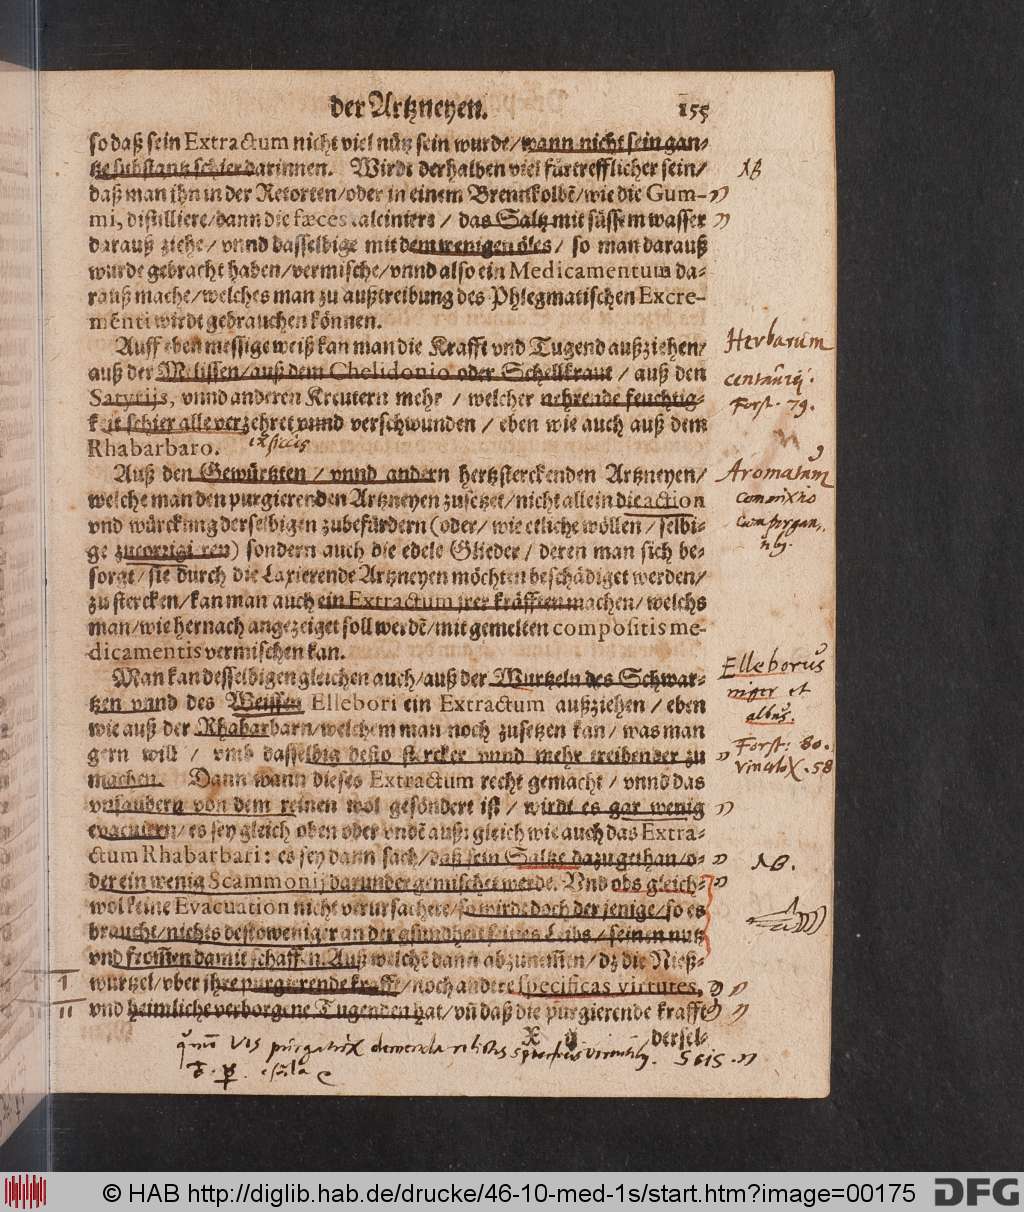 der Artzneyen. 155
so daß sein Extractum nicht viel nütz sein wurde/wann nicht sein gan-
tze substantz schier darinnen. Wirdt derhalben viel fürtrefflicher sein/
daß man ihn in der Retorten/oder in einem Brennkolbē/wie die Gum-
mi, distilliere/dann die fæces calciniers / das Saltz mit süssem wasser
darauß ziehe/ vnnd dasselbige mit dem wenigen öles/ so man darauß
wurde gebracht haben/vermische/vnnd also ein Medicamentum da-
rauß mache/welches man zu außtreibung des Phlegmatischen Excre-
mēnti wirdt gebrauchen können.
Auff eben messige weiß kan man die Krafft vnd Tugend außziehen/
auß der Melissen/auß dem Chelidonio oder Schellkraut / auß den
Satyrijs, vnnd anderen Kreutern mehr / welcher nehrende feuchtig-
keit schier alle verzehret vnnd verschwunden / eben wie auch auß dem
Rhabarbaro.
Auß den Gewürtzten / vnnd andern hertzsterckenden Artzneyen/
welche man den purgierenden Artzneyen zusetzet/nicht allein die action
vnd würckung derselbigen zubefürdern (oder/ wie etliche wöllen / selbi-
ge zucorrigiren) sondern auch die edele Glieder / deren man sich be-
sorgt/sie durch die Laxierende Artzneyen möchten beschädiget werden/
zu stercken/kan man auch ein Extractum jrer kräfften machen/welchs
man/wie hernach angezeiget soll werdē/mit gemelten compositis me-
dicamentis vermischen kan.
Man kan desselbigen gleichen auch/auß der Wurtzeln des Schwar-
tzen vnnd des Weissen Ellebori ein Extractum außziehen/ eben
wie auß der Rhabarbarn/welchem man noch zusetzen kan/was man
gern will / vmb dasselbig desto stercker vnnd mehr treibender zu
machen. Dann wann dieses Extractum recht gemacht / vnnd das
vnsaubern von dem reinen wol gesöndert ist / wirdt es gar wenig
evacuirn/ es sey gleich oben oder vndē auß: gleich wie auch das Extra-
ctum Rhabarbari: es sey dann sach/daß sein Saltze dazu gethan/o-
der ein wenig Scammonij darunder gemischet werde. Vnd obs gleich-
wol keine Evacuation nicht verursachete/so wirdt doch der jenige/so es
braucht/nichts destoweniger an der gsundheit seines Leibs / seinen nutz
vnd frommen damit schaffen. Auß welchē dann abzunemmen/dz die Nieß-
wurtzel/vber ihre purgierende krafft/noch andere specificas virtutes,
vnd heimliche verborgene Tugenden hat/vñ daß die purgierende krafft
X ij dersel-
NB
Herbarum
centaurij.
Forst. 79.
exsiccis
Aromatum
Elleborus
niger et
albus.
Forst: 80.
58
NB.
© HAB http://diglib.hab.de/drucke/46-10-med-1s/start.htm?image=00175 DFG